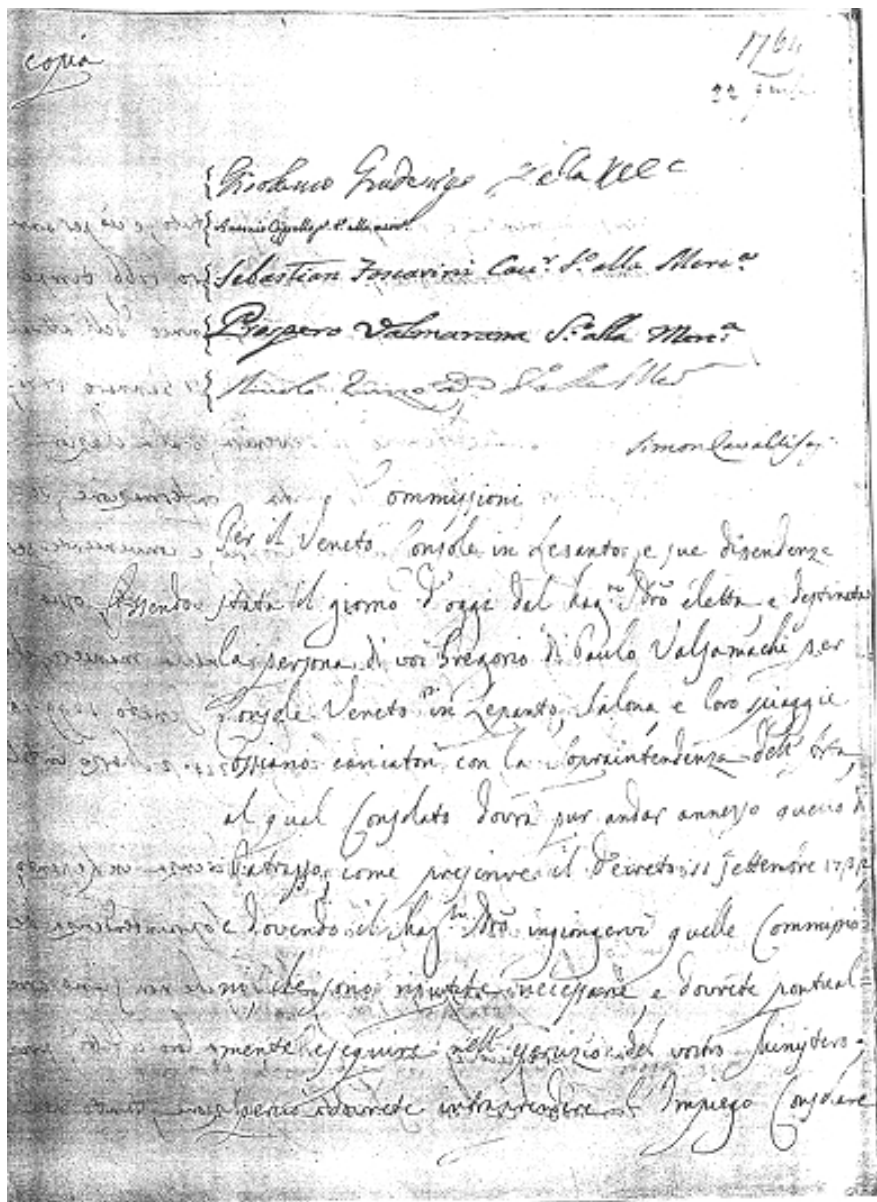 copia
1764
22
Girolamo Gradenigo
Antonio Cappello
Sebastian Foscarini Cav.r S.o alla Merc.a
Prospero Valmarana S.o alla Merc.a
Simon Cavalli
Commissioni
Per il Veneto Console in Lepanto, e sue dipendenze
Essendo stata il giorno d'oggi dal Mag.to Nro eletta, e destinata
la persona di voi Gregorio di Paulo Valsamachi per
Console Veneto in Lepanto, Salona e loro spiaggie
con la Sopraintendenza dell'
al qual Consolato dovrà pur andar annesso quello di
Patrasso, come prescrive il Decreto 11 Settembre 1732
e dovendo il Mag.to Nro ingiongervi quelle Commissio
ni che sono riputate necessarie, e dovrete pontual
mente eseguire nell' esercizio del vostro Ministero,
perciò dovrete intraprendere l' Impiego Consolare